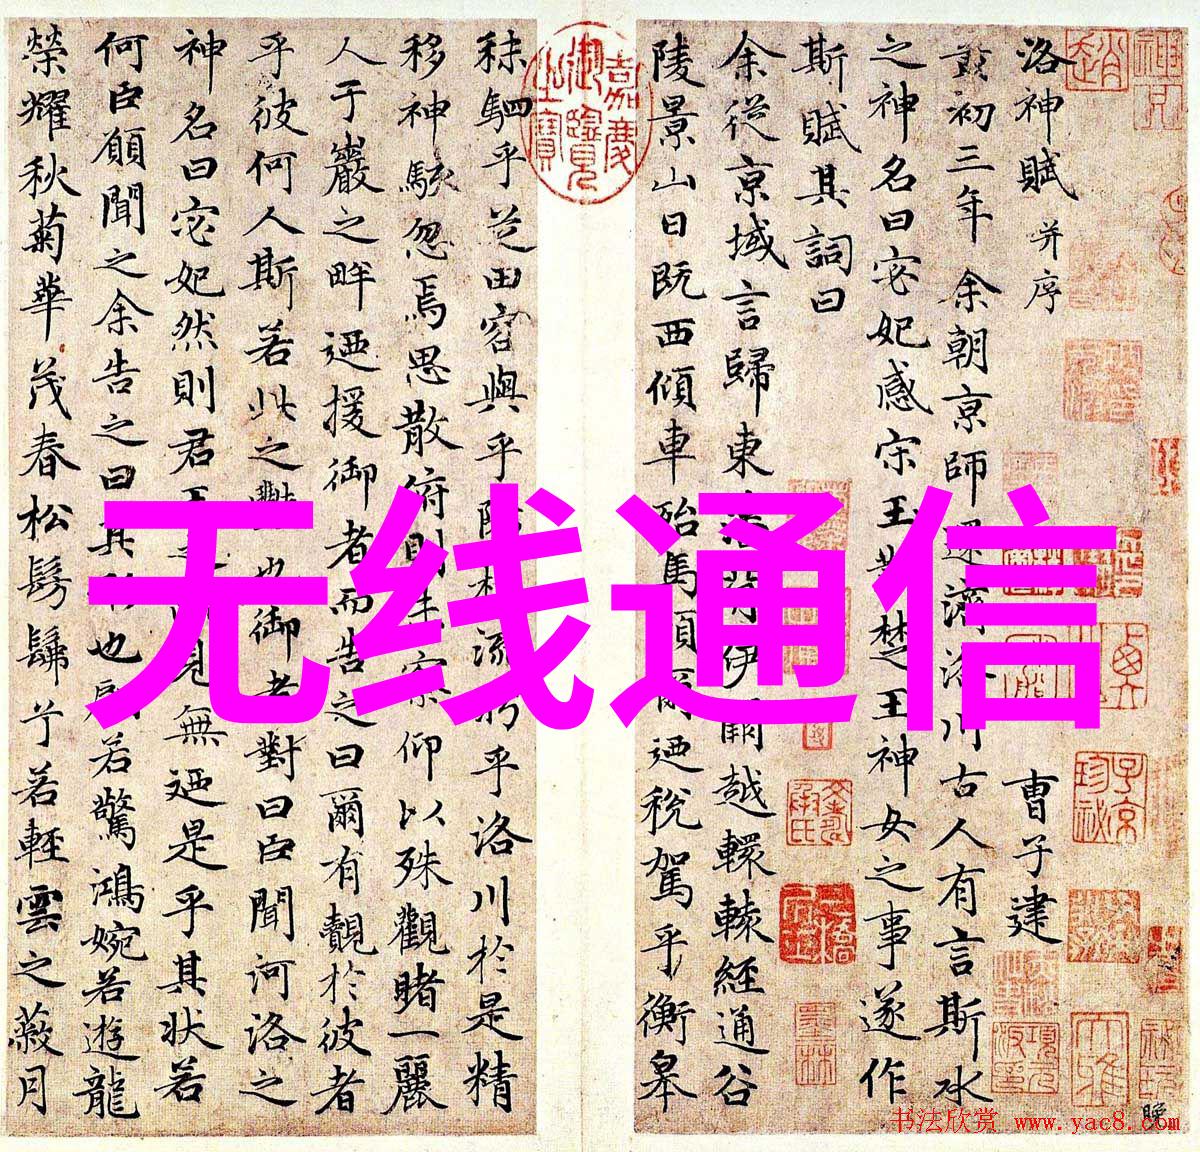 洛神賦 并序 曹子建
黃初三年余朝京師還濟洛川古人有言斯水
之神名曰宓妃感宋玉對楚王神女之事遂作
斯賦其詞曰
余從京域言歸東藩背伊闕越轘轅經通谷
陵景山日既西傾車殆馬煩爾迺稅駕乎衡皋
秣駟乎芝田容與乎陽林流眄乎洛川於是精
移神駭忽焉思散俯則未察仰以殊觀睹一麗
人于巖之畔迺援御者而告之曰爾有覿於彼者
乎彼何人斯若此之豔也御者對曰臣聞河洛之
神名曰宓妃然則君王所見無迺是乎其狀若
何臣願聞之余告之曰其形也翩若驚鴻婉若遊龍
榮耀秋菊華茂春松髣髴兮若輕雲之蔽月
嘉慶御覽之寶
无线通信
书法欣赏 www.yac8.com